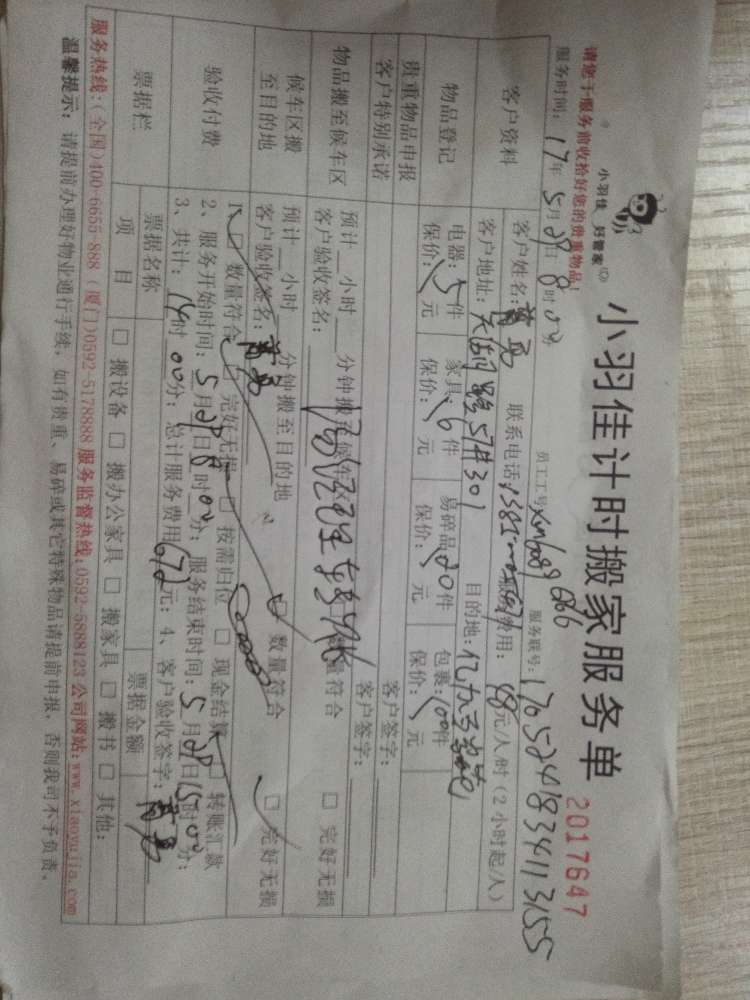 小羽佳 好管家
小羽佳计时搬家服务单
2017647
请您于服务前收拾好您的贵重物品！
员工工号 服务联号：
服务时间：17年5月29日8时00分
客户资料
客户姓名： 联系电话： 费用：68元/人/时（2小时起/人）
客户地址： 目的地：
物品登记
电器：5件 家具：6件 易碎品：20件 包裹：100件
保价：元 保价：元 保价：元 保价：元
贵重物品申报 客户签字：
客户特别承诺 客户签字：
物品搬至候车区
预计 小时 分钟搬至候车区 数量符合 □ 完好无损
客户验收签名：
候车区搬至目的地
预计 小时 分钟搬至目的地 □ 数量符合 □ 完好无损
客户验收签名：
验收付费
1、□ 数量符合 □ 完好无损 □ 按需归位 □ 现金结算 □ 转账汇款
2、服务开始时间：5月29日8时00分；服务结束时间：5月29日15时00分；
3、共计：14时00分；总计服务费用：672元；4、客户验收签字：
票据栏
票据名称 票据金额
项目 □ 搬设备 □ 搬办公家具 □ 搬家具 □ 搬书 □ 其他：
服务热线：(全国)400-6655-888 (厦门)0592-5178888 服务监督热线：0592-5888123 公司网站：www.xiaoyujia.com
温馨提示：请提前办理好物业通行手续，如有贵重、易碎或其它特殊物品请提前申报，否则我司不予负责。